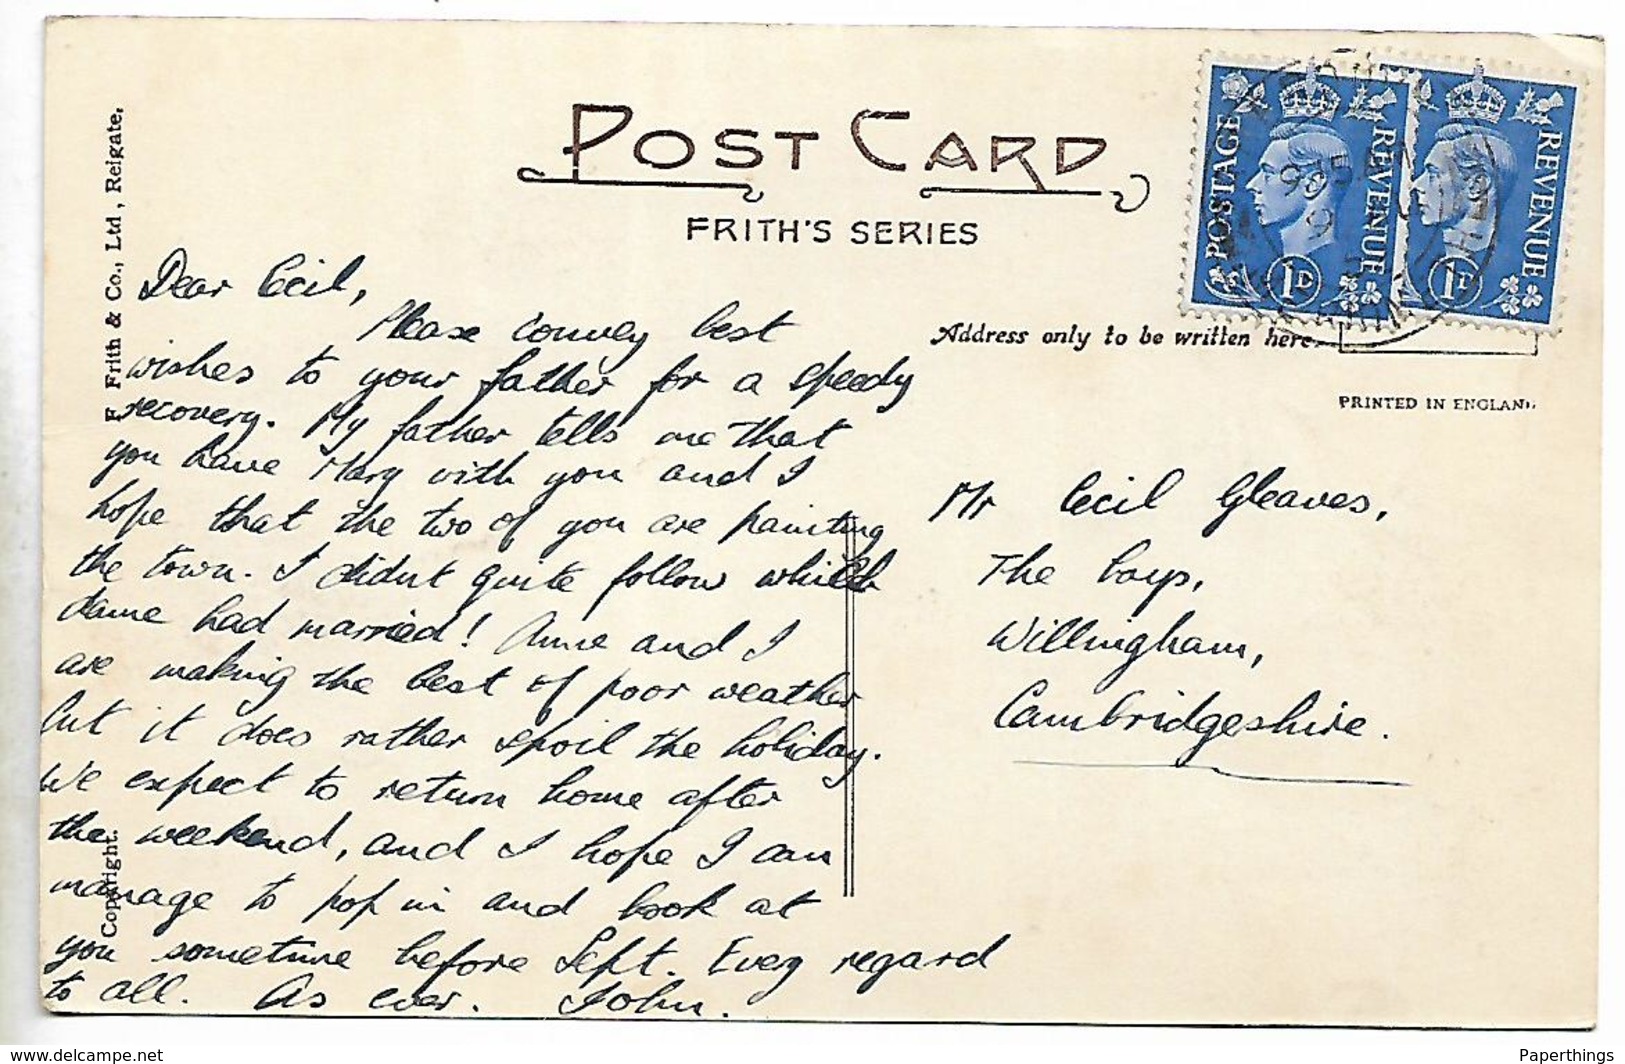 POST CARD
FRITH'S SERIES
F. Frith & Co., Ltd, Reigate.
Copyright.
POSTAGE
REVENUE
1D
REVENUE
1D
Address only to be written here.
PRINTED IN ENGLAND
Dear Cecil,
Please convey best
wishes to your father for a speedy
recovery. My father tells me that
you have Mary with you and I
hope that the two of you are painting
the town. I didnt quite follow which
dame had married! Anne and I
are making the best of poor weather
but it does rather spoil the holiday.
We expect to return home after
the weekend, and I hope I can
manage to pop in and look at
you sometime before Sept. Every regard
to all. As ever. John.
Mr Cecil Gleaves,
The
Willingham,
Cambridgeshire.
Paperthings
www.delcampe.net